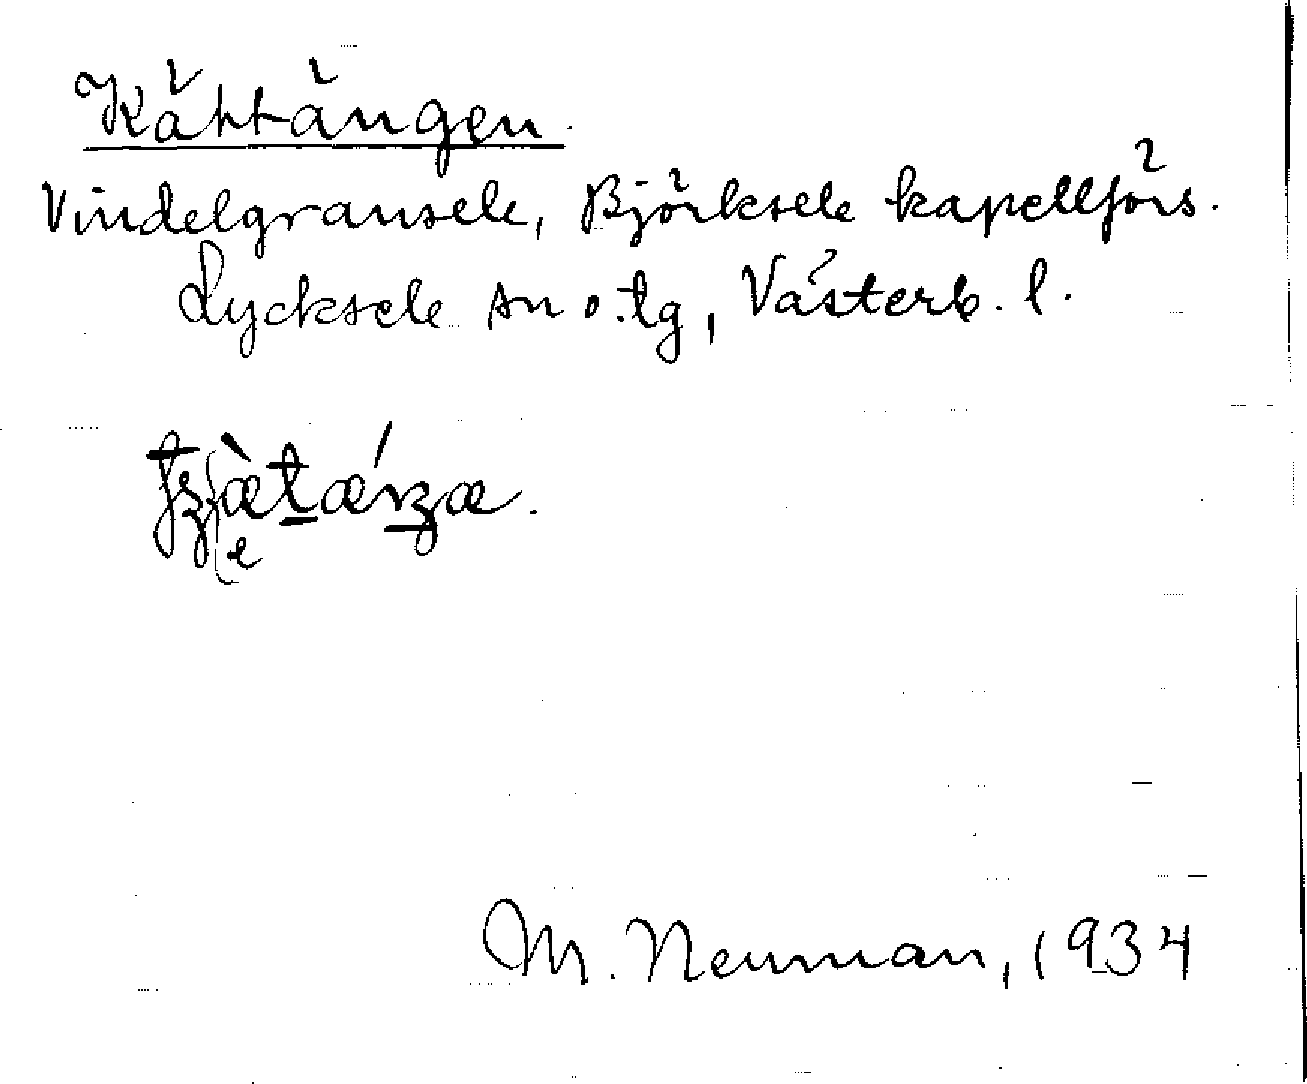 Kättängen.
Vindelgransele, Björksele kapellförs.
Lycksele sn o. lg, Västerb. l.
M. Neuman, 1934